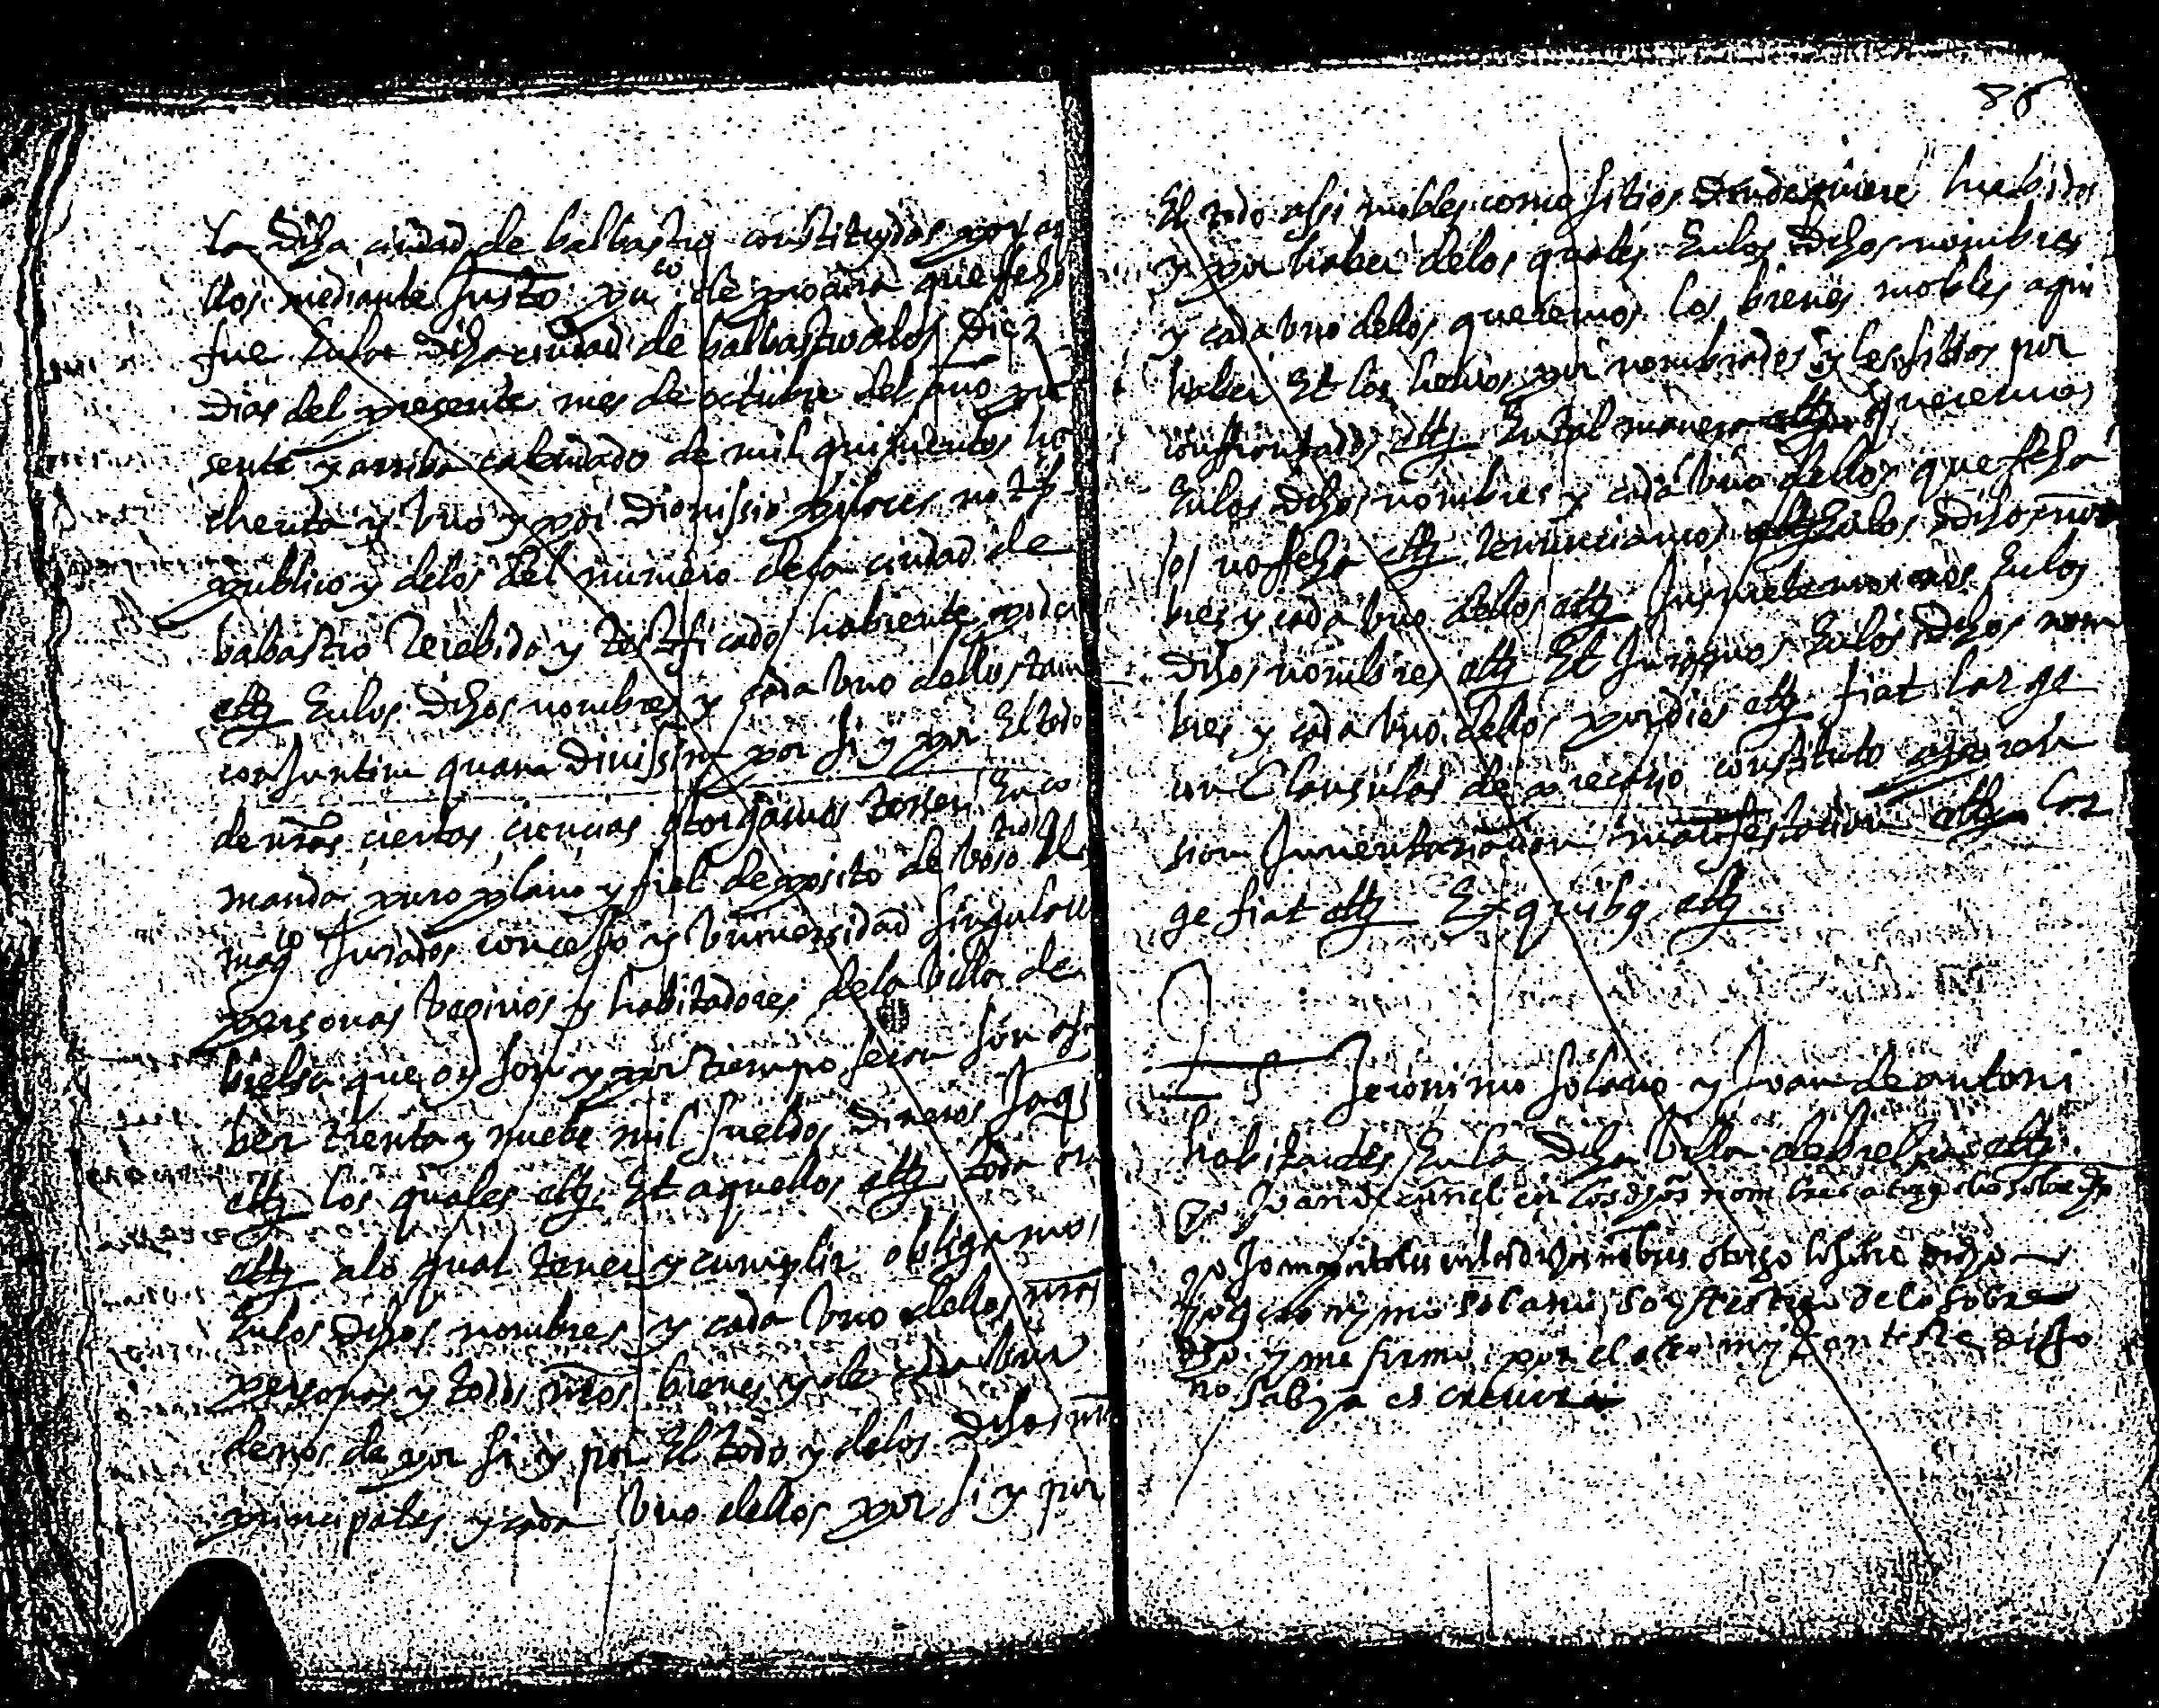 la dicha ciudad de balbastro constituydos por aq
llos mediante Insto pu^co de procura que fecho
fue En la dicha ciudad de balbastro a los Diez
Dias del presente mes de octubre del año pre
sente y arriba calendado de mil quinientos ho
chenta y Uno y por Dionissio pilares not^o
publico y delos del numero de la ciudad de
babastro Recebido y testificado habiente poder
ettz En los Dichos nombres y cada Uno dellos tam
conJuntim quam Divissim por si y por El todo
de nras ciertas ciencias otorgamos tener En co
manda puro plano y fiel deposito de Vos^tros los
mag^cos Jurados concejo y Universidad singulares
personas Vecinos y habitadores de la Villa de
bielsa que oy son y por tiempo seran son a sa
ber trenta y nuebe mil sueldos Dineros Jaq^s
ettz los quales ettz Et aquellos ettz toda
ettz alo qual tener y cumplir obligamos
En los Dichos nombres y cada Uno dellos nras
personas y todos nros bienes y de cada Uno
de nos de por si y por El todo y delos Dichos nros
principales y cada Uno dellos por si y por
88
El todo assi mobles como sitios Dondequiere habidos
y por haber delos quales En los Dichos nombres
y cada Uno dellos queremos los bienes mobles aqui
haber Et los habemos por nombrados y los sitios por
confrontados ettz En tal manera queremos
En los Dichos nombres y cada Uno dellos que fecha
o no fecha ettz Renunciamos En los Dichos nom
bres y cada Uno dellos ettz Jusmetemonos En los
Dichos nombres ettz Et Juramos En los Dichos nom
bres y cada Uno dellos por dios ettz fiat large
con Clausulas de precario constituto aprehen
sion Inventariacion manifestacion ettz lar
ge fiat ettz Ex quibus ettz
T^s Jeronimo solano y Juan de antoni
habitantes En la Dicha Villa de bielsa ettz
Yo Juan de en los dhos nombres atorgo lo sobre dho
yo en los dichos nombres otorgo lo sobre dicho
yo geronymo solano soy testigo de lo sobre
dho y me firmo por el otro mi conteste dixo
no sabia escreuir